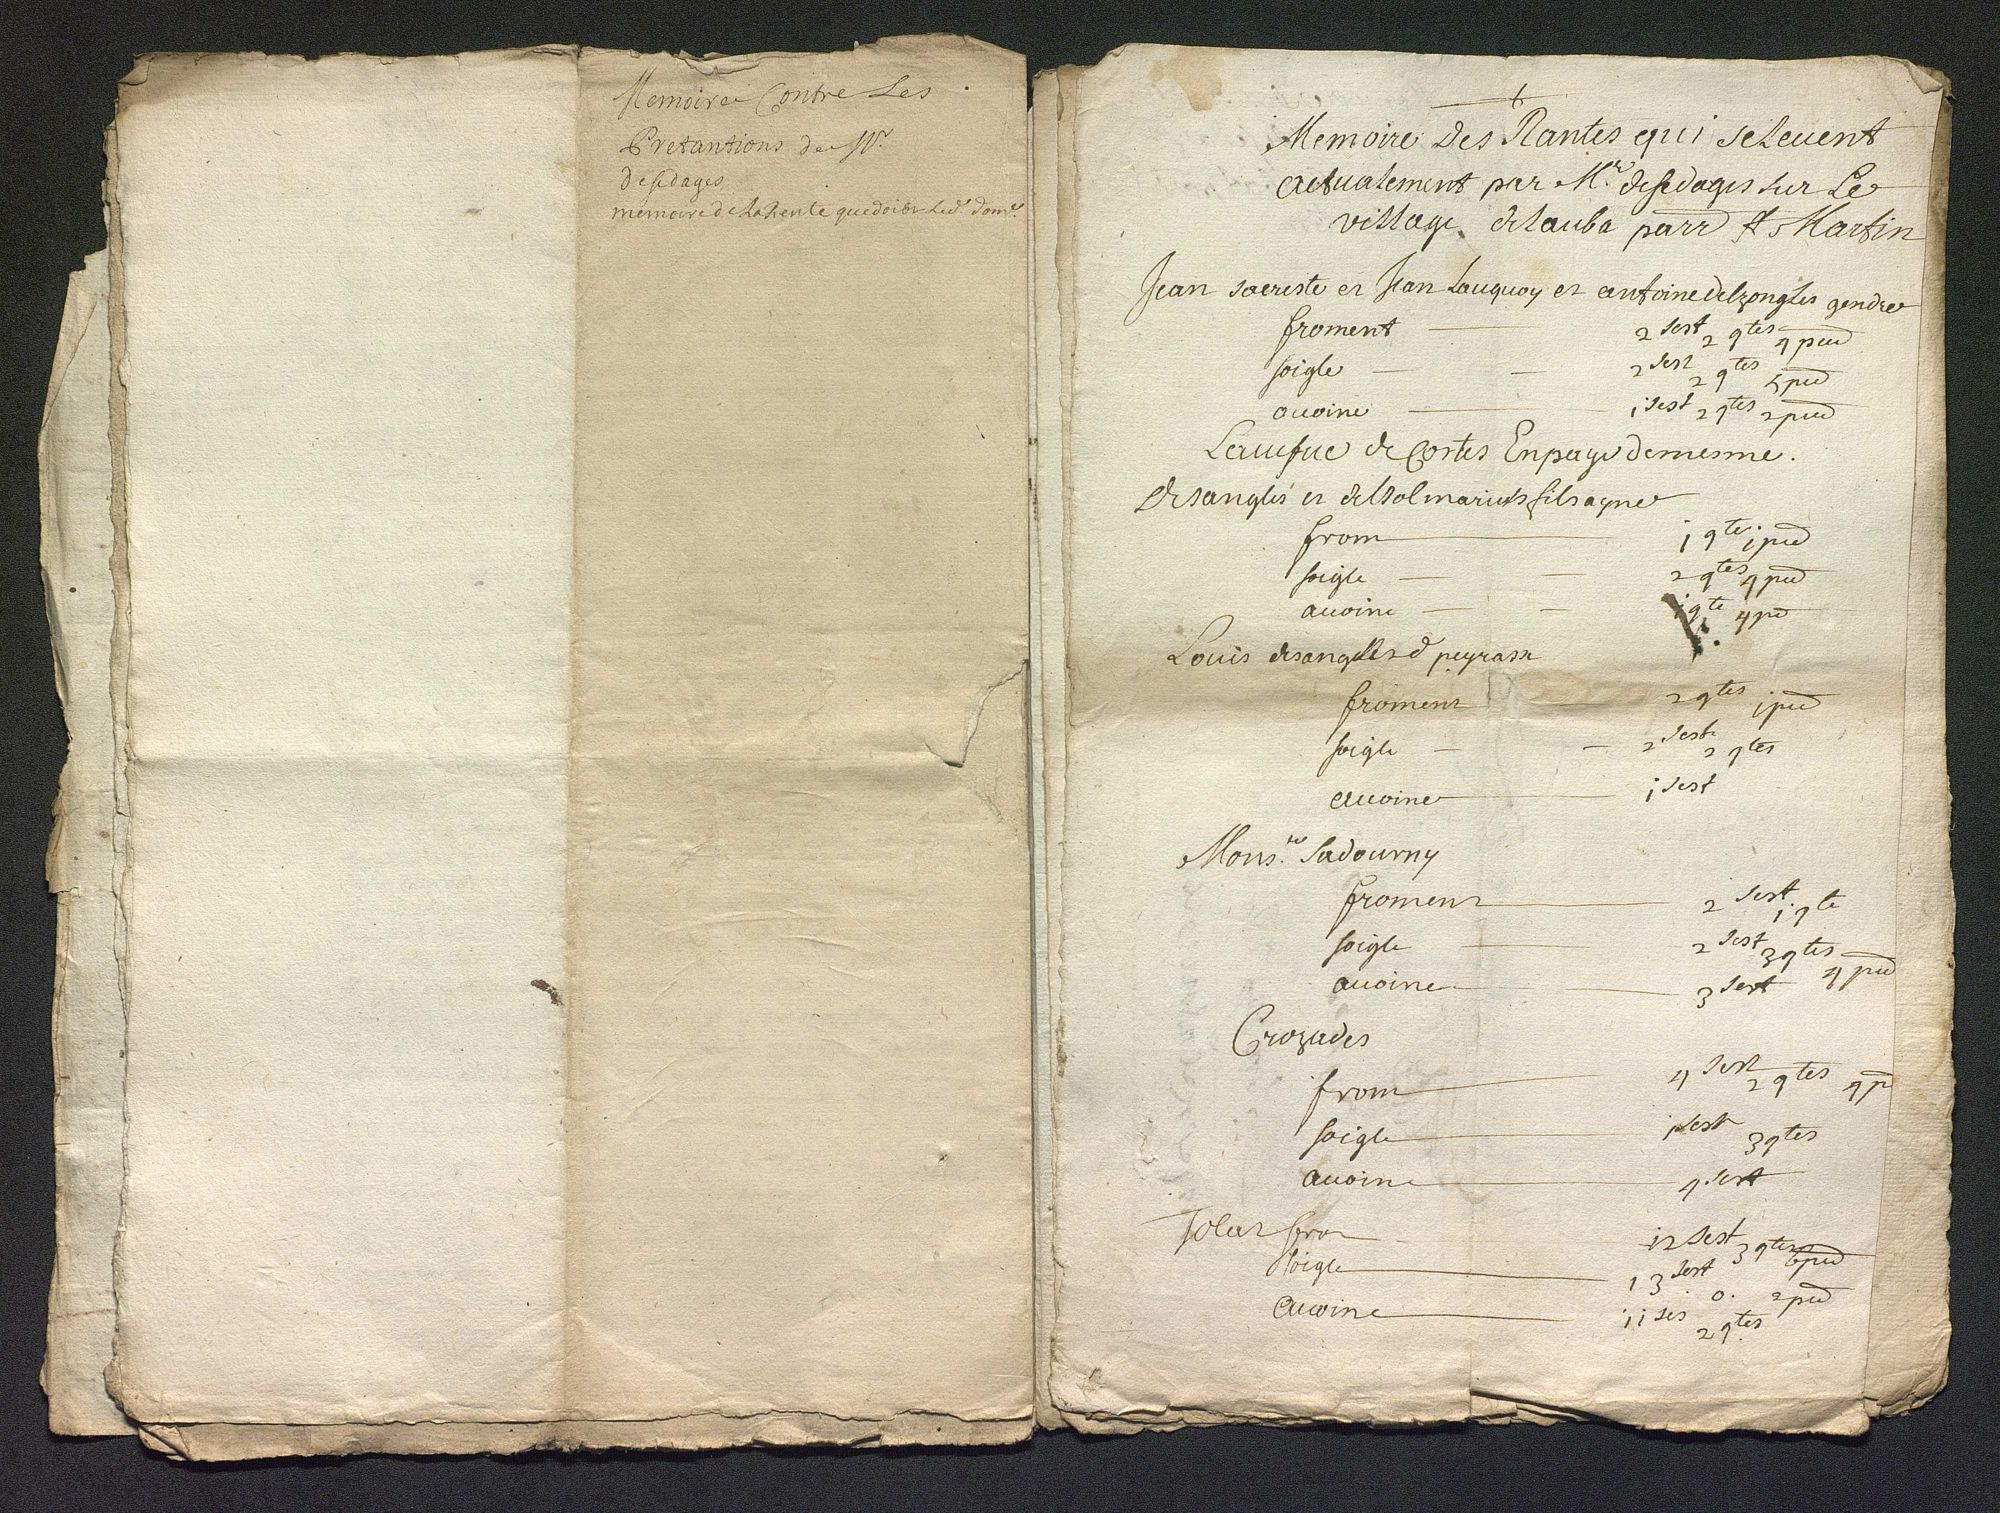 Memoire Contre Les
Pretantions de Mr.
desedages
memoire de la Rente que doibt led. dome.
Memoire Des Rantes qui se Leuent
actualement par Mr. desedages sur Le
village de lauba parr St Martin
Jean sacreste et Jean Lauquoy et antoine delzongles gendre
froment 2 sest 2 qtes 4 pud
soigle 2 sest 2 qtes 5 pud
auoine i sest 2 qtes 2 pud
La uefue de Cortes En paye de mesme.
desangles et delsolmariets fils ayne
from i qte i pud
soigle 2 qtes 4 pud
auoine i qte 4 pd
Louis desangles d peyrasse
froment 2 qtes i pud
soigle 2 sest 2 qtes
auoine i sest
Monsr. Sadourny
froment 2 sest i qte
soigle 2 sest 3 qtes 4 pud
auoine 3 sest
Crozades
from 4 sest 2 qtes 4 p
soigle i sest 3 qtes
auoine 4 sest
fro i2 sest 3 qtes 6 pud
soigle 1 3 sest . 0 . 2 pud
auoine ii ses 2 qtes